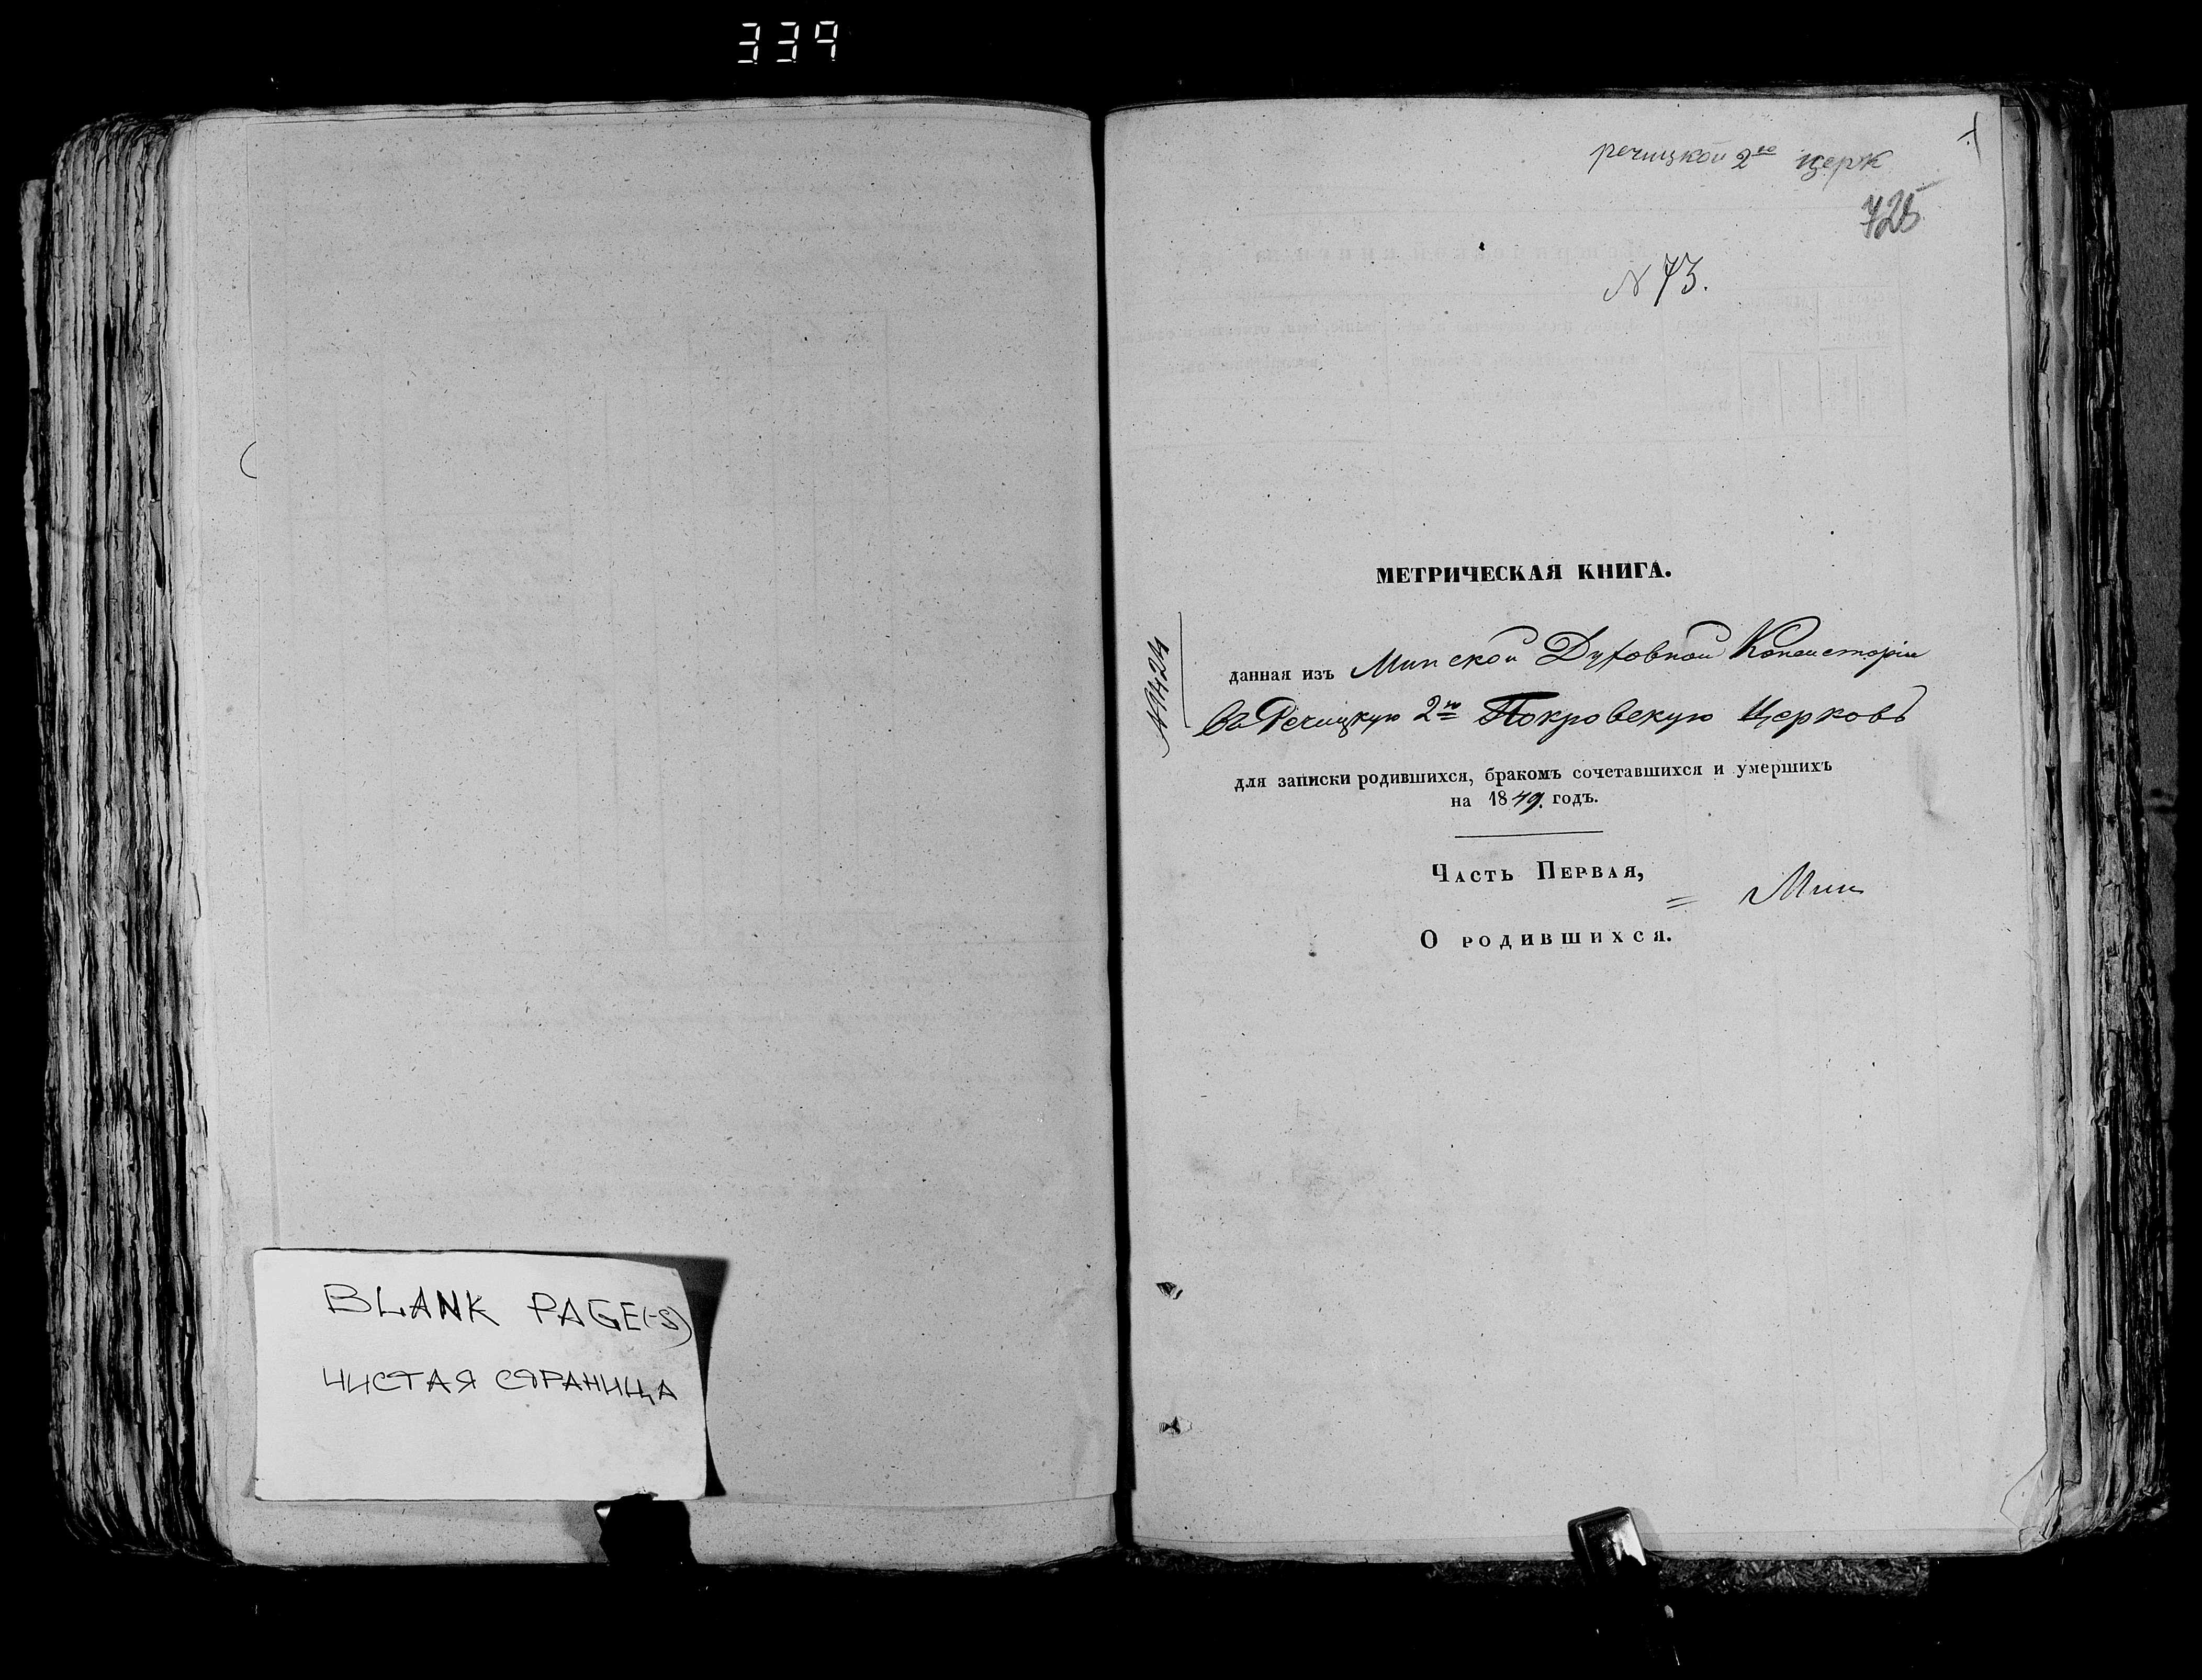 339
BLANK PAGE(-S)
ЧИСТАЯ СТРАНИЦА
речицкой 2ой церк
725
N 73.
МЕТРИЧЕСКАЯ КНИГА.
данная изъ Минской Духовной Консисторіи
Въ Речицкую 2ю Покровскую Церковь
для записки родившихся, бракомъ сочетавшихся и умершихъ
на 1849. годъ.
Часть Первая,
О родившихся.